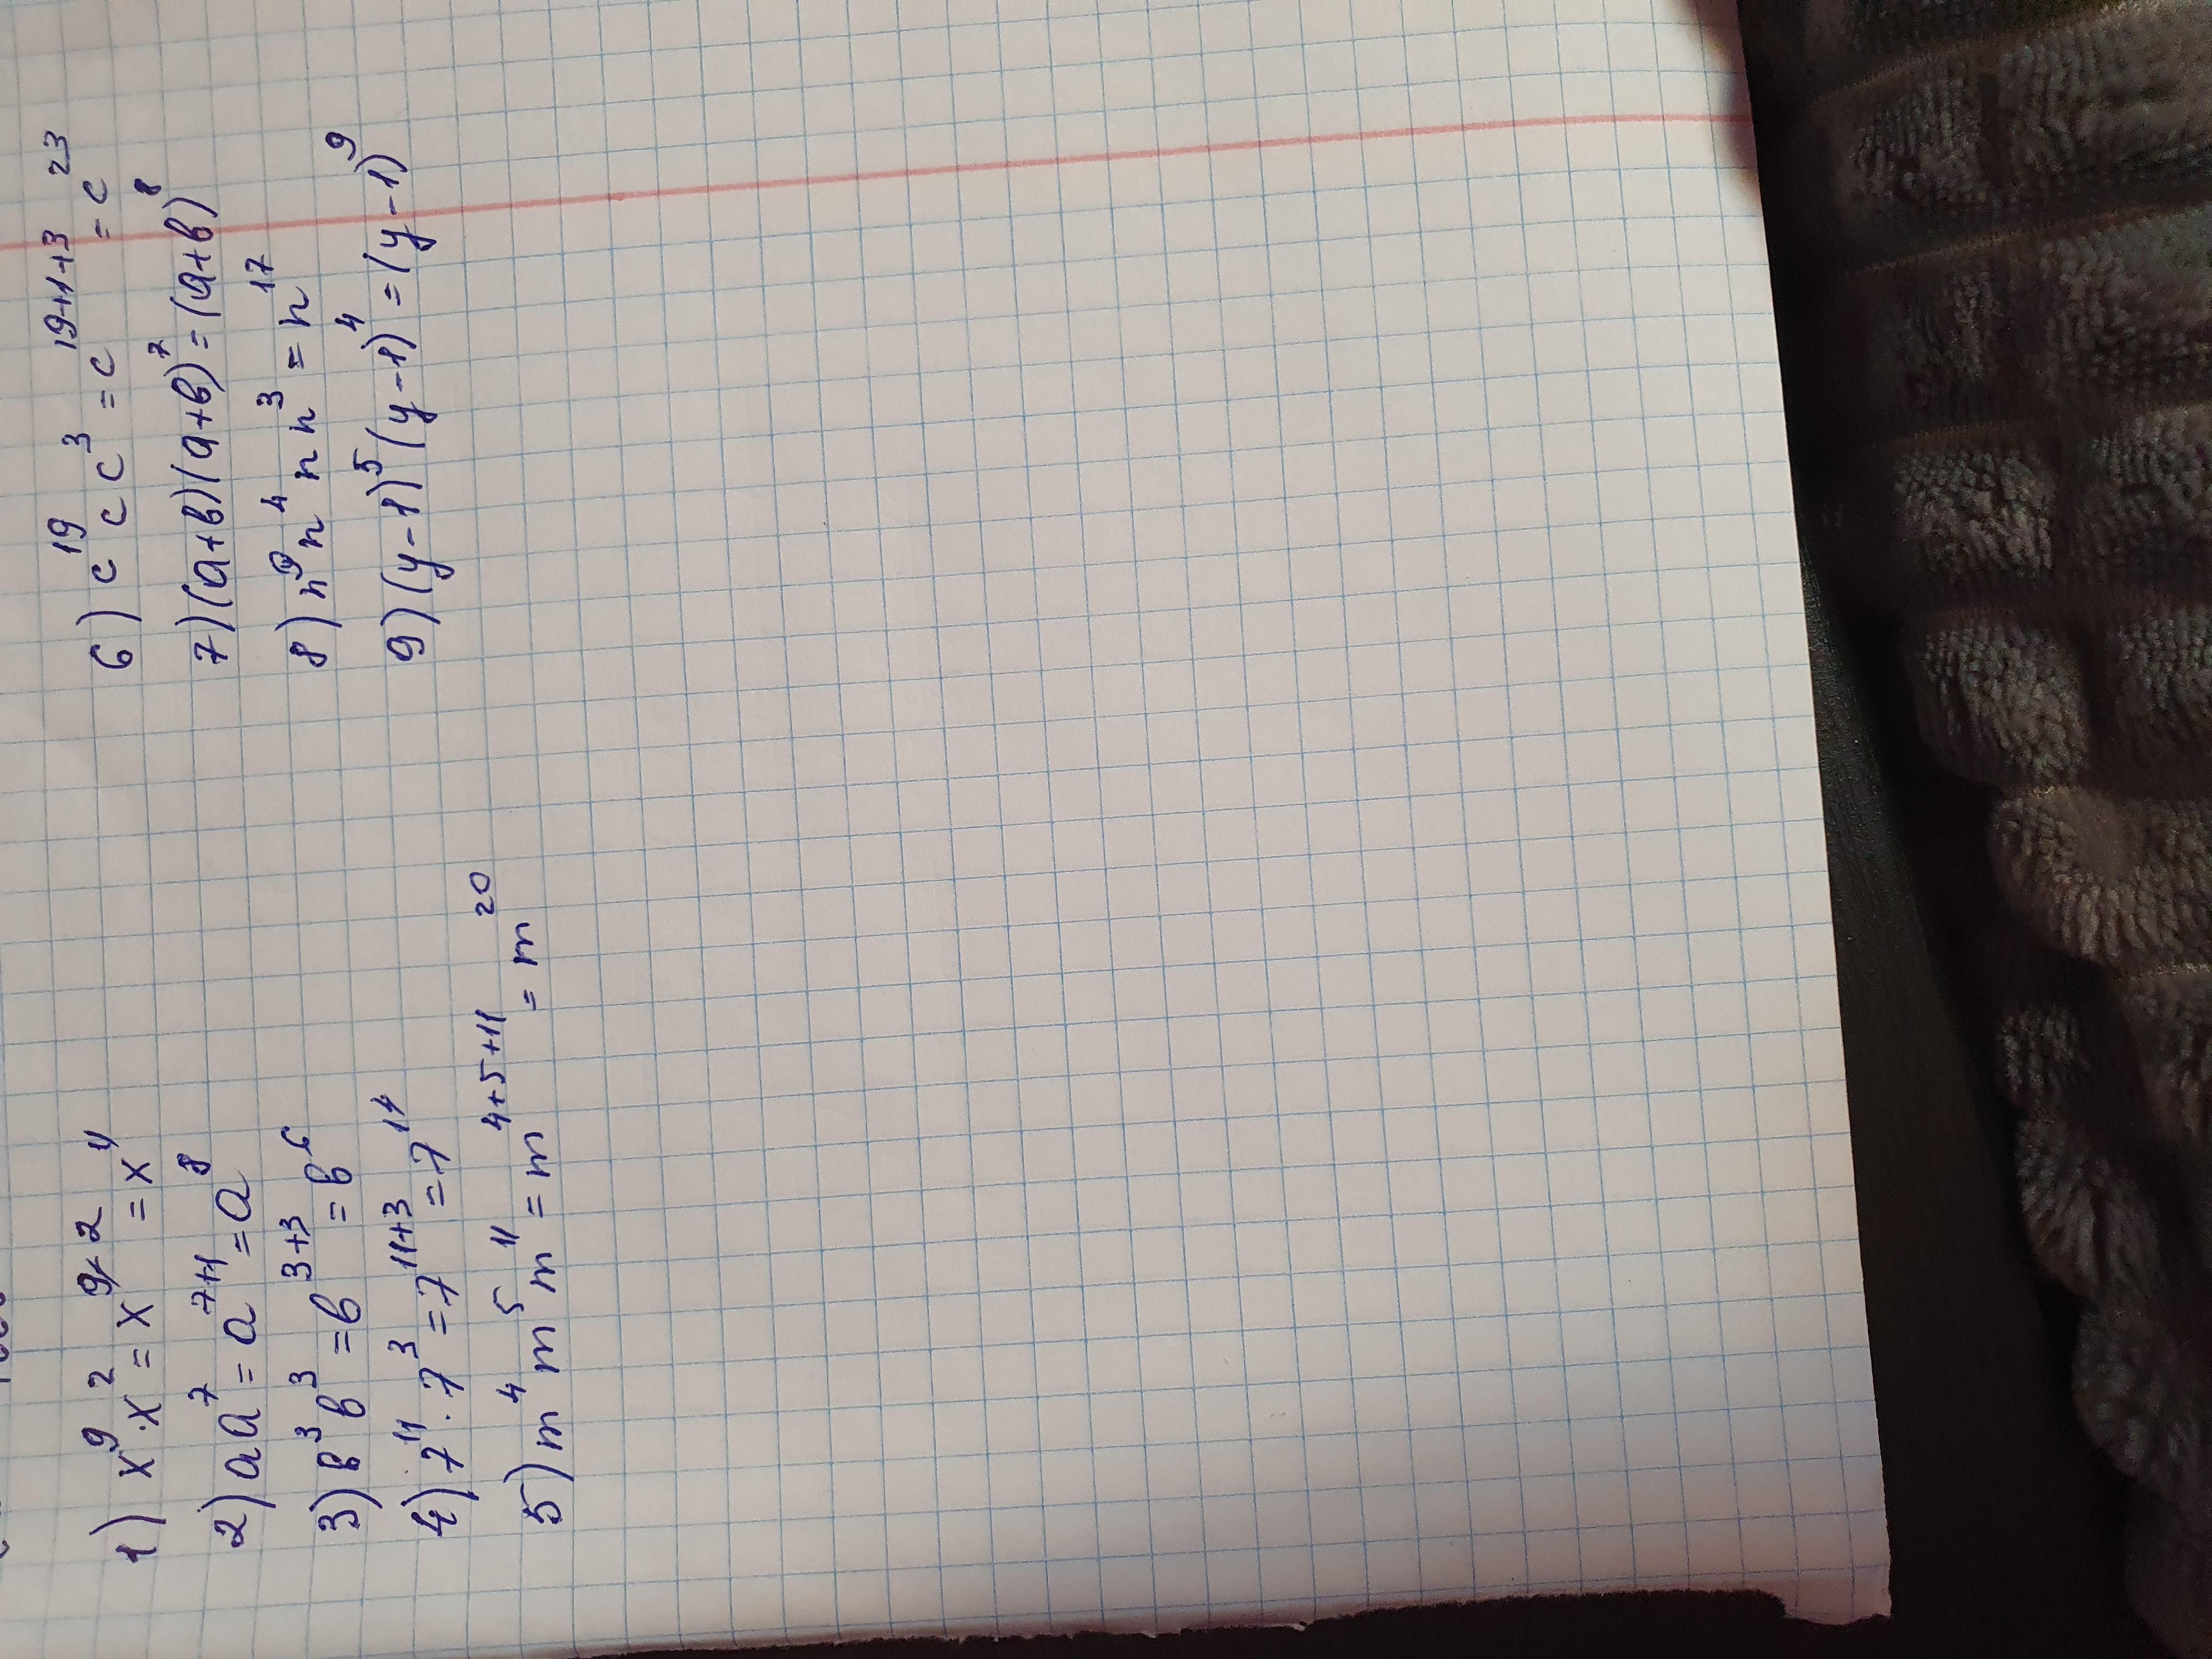 1) x⁹·x² = x⁹⁺² = x¹¹
2) aa⁷ = a⁷⁺¹ = a⁸
3) в³в³ = в³⁺³ = в⁶
4) 7¹¹·7³ = 7¹¹⁺³ = 7¹⁴
5) m⁴m⁵m¹¹ = m⁴⁺⁵⁺¹¹ = m²⁰
6) c¹⁹cc³ = c¹⁹⁺¹⁺³ = c²³
7) (a+в)(a+в)⁷ = (a+в)⁸
8) n⁹n⁴nn³ = n¹⁷
9) (y-1)⁵(y-1)⁴ = (y-1)⁹